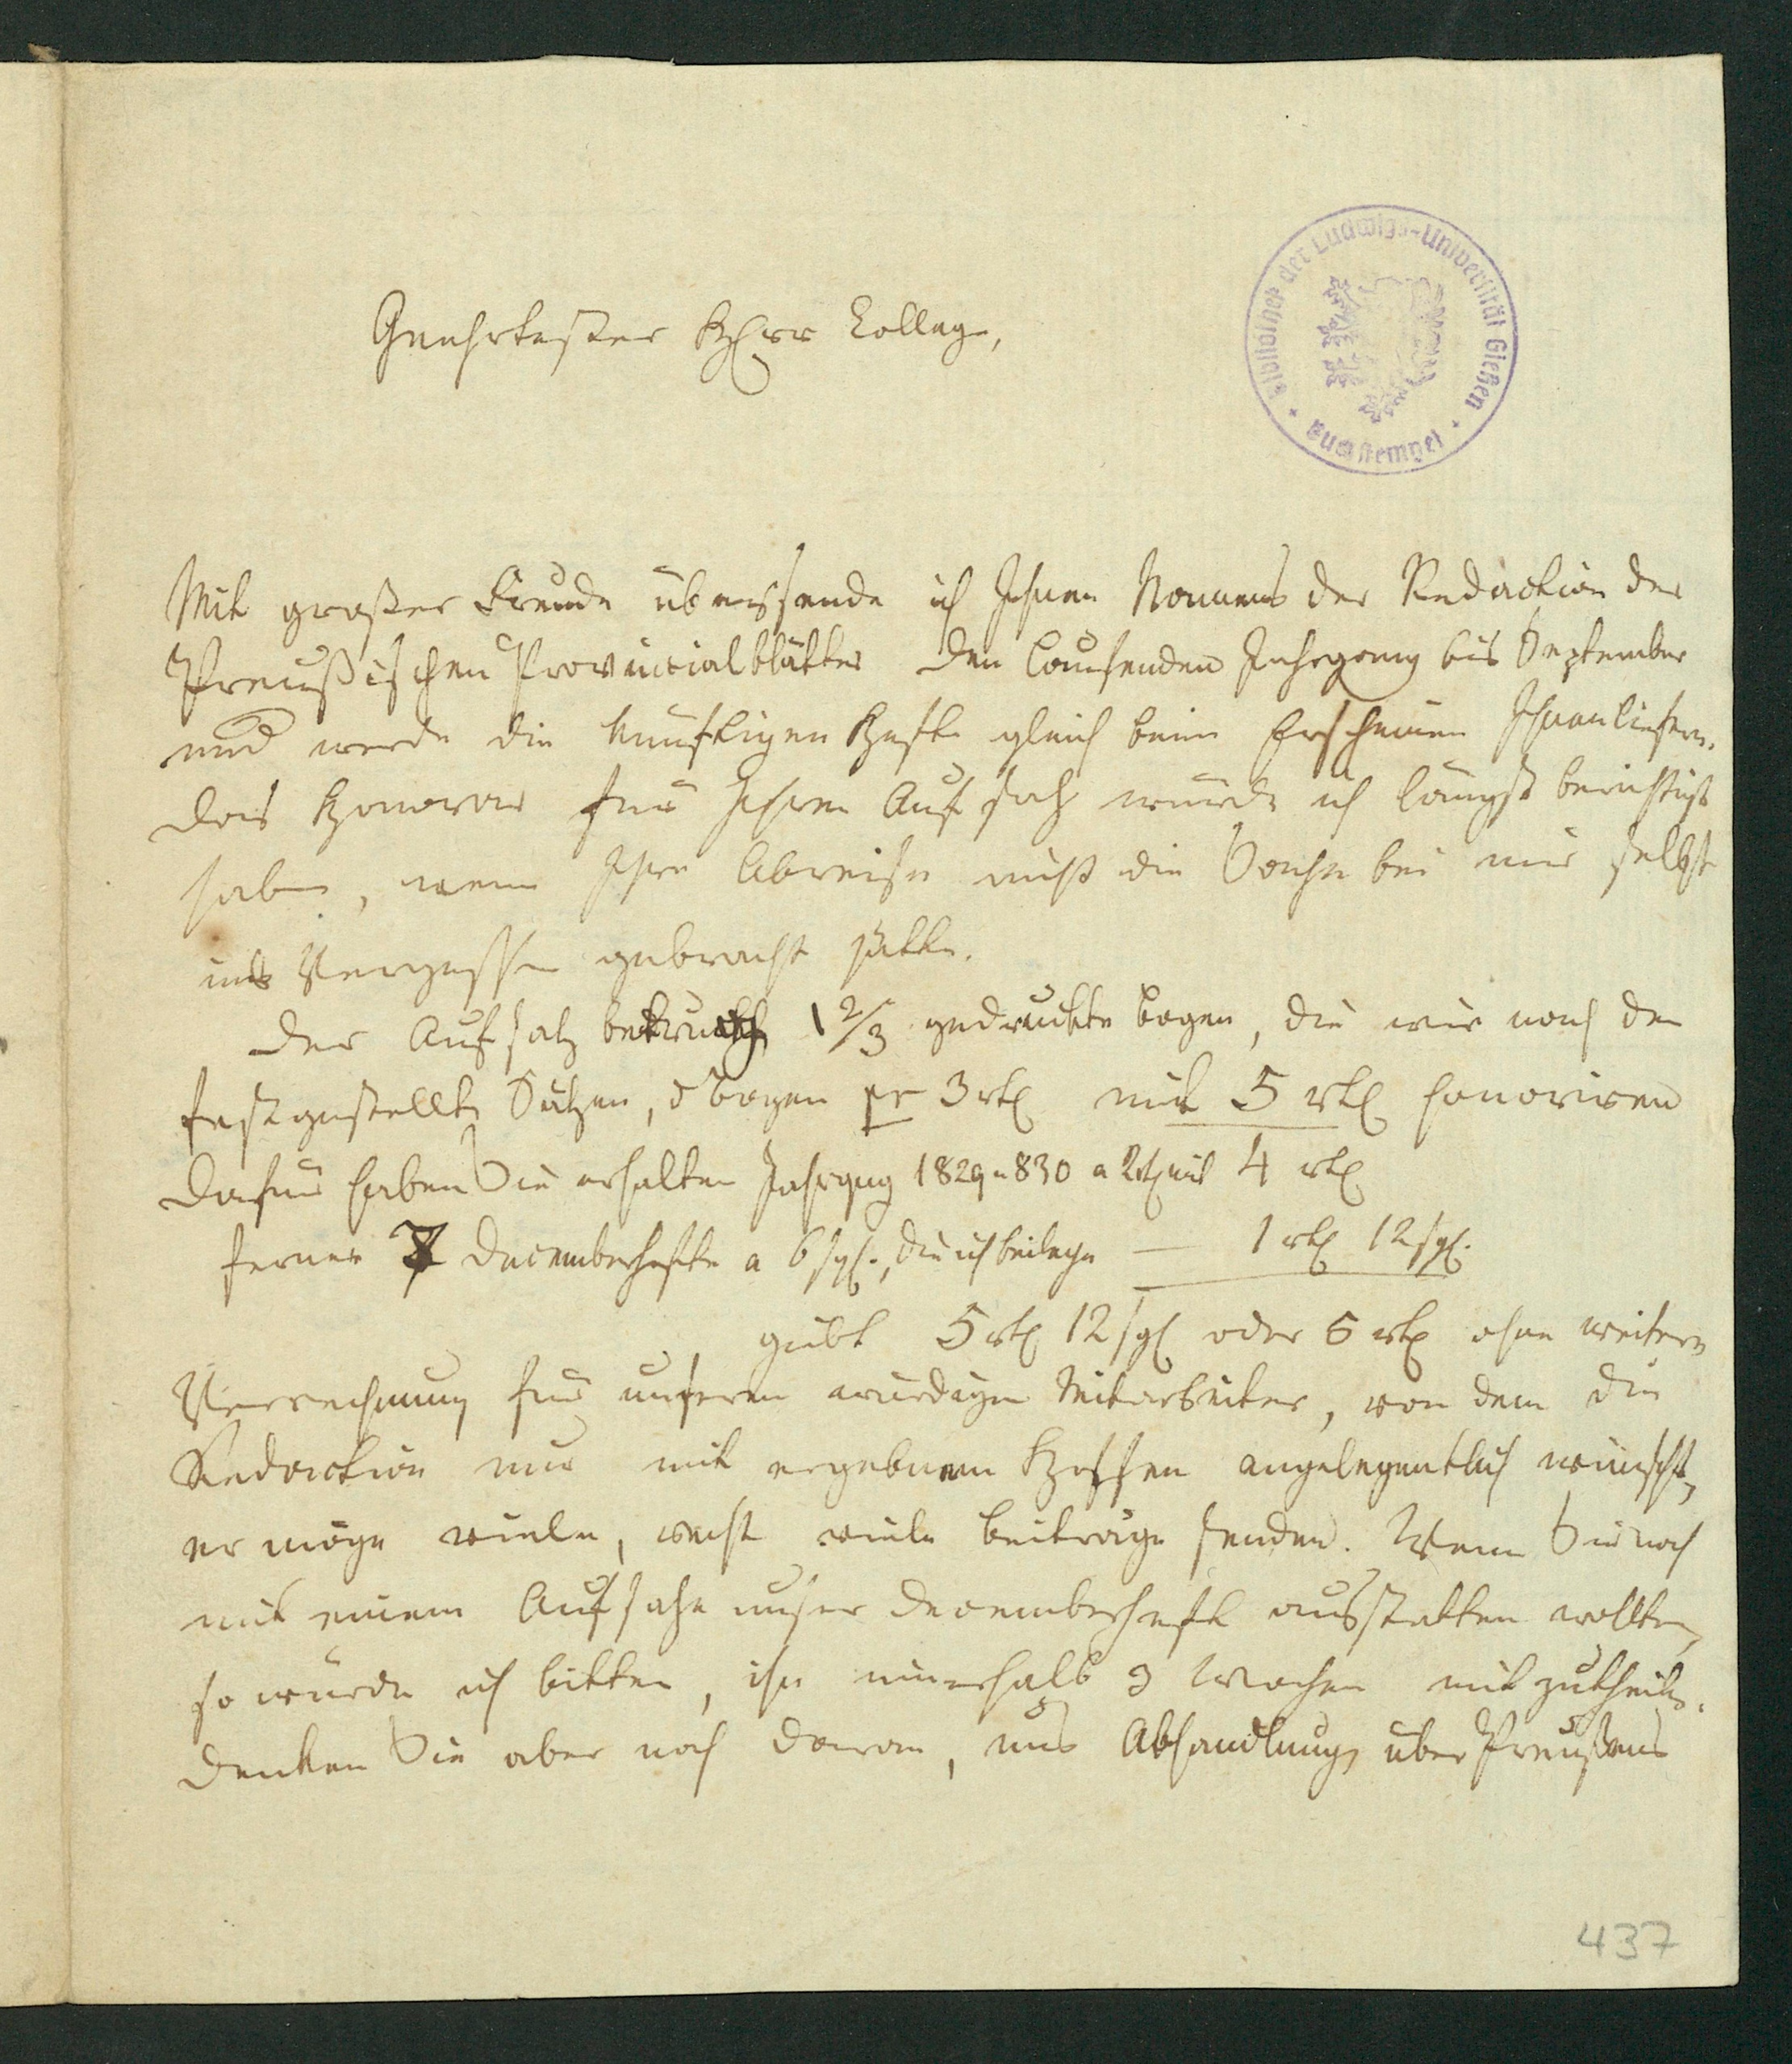 Bibliothek der Ludwigs-Universität Gießen
Buchstempel
Geehrtester Herr College,
Mit großer Freude übersende ich Ihnen Namens der Redaction der
Preußischen Provincialblätter den laufenden Jahrgang bis September
und werde die künftigen Hefte gleich beim Erscheinen Ihnen liefern.
Das Honorar für Ihren Aufsatz würde ich längst berichtigt
haben, wenn Ihre Abreise nicht die Sache bei mir selbst
ins Vergessen gebracht hätte.
Der Aufsatz 1 2/3 gedruckte Bogen, die wir nach den
festgestellten Sätzen, d Bogen pr 3 rtl mit 5 rtl honoriren
Dafür haben Sie erhalten Jahrgng 1829 u 830 a 2 rtl mit 4 rtl
ferner 7 Decemberhefte a 6 sgl., die ich beilege — 1 rtl 12 sgl.
giebt 5 rtl 12 sgl oder 5 rtl ohne weitere
Verrechnung für unseren würdigen Mitarbeiter, von dem die
Redaction nur mit ergebnem Hoffen angelegentlich wünscht,
er möge viele, recht viele Beiträge senden. Wenn Sie noch
mit einem Aufsatze unser Decemberheft ausstatten wollten,
so würde ich bitten, ihn innerhalb 3 Wochen mitzutheilen.
Denken Sie aber noch daran, uns Abhandlungen über Preußens
437